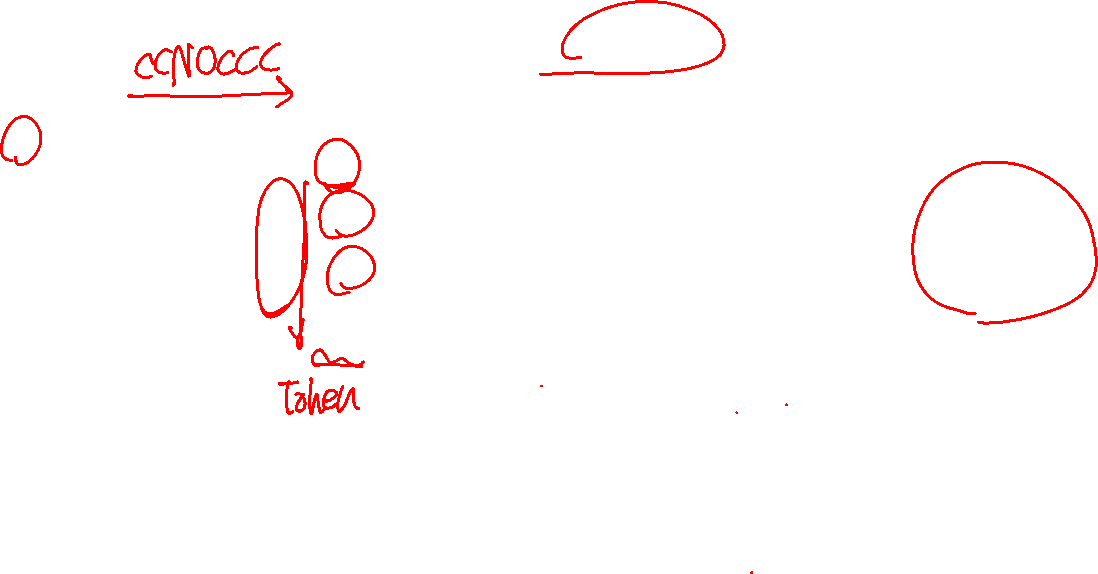 CCNOCCC
Token